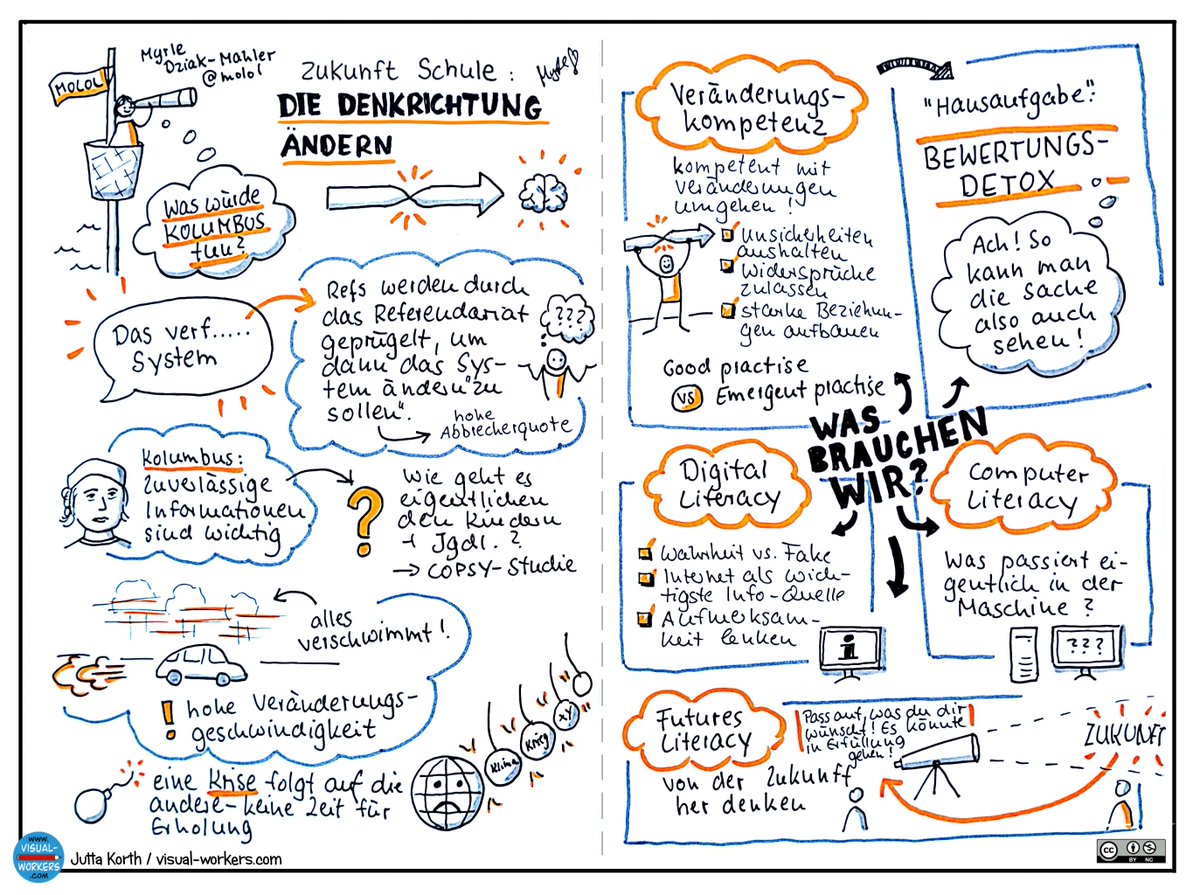 MOLOL
Myrle
Dziak-Mahler
@molol
Zukunft Schule:
DIE DENKRICHTUNG
ÄNDERN
Was würde
KOLUMBUS
tun?
Das verf.....
System
Refs werden durch
das Referendariat
geprügelt, um
dann das Sys-
tem ändern "zu
sollen".
hohe
Abbrecherquote
???
Kolumbus:
Zuverlässige
Informationen
sind wichtig
?
Wie geht es
eigentlichen
den Kindern
+ Jgdl.?
→ COPSY-Studie
alles
verschwimmt!
! hohe Veränderungs-
geschwindigkeit
eine Krise folgt auf die
andere - keine Zeit für
Erholung
Klima
Krieg
XY
Veränderungs-
kompetenz
kompetent mit
Veränderungen
umgehen!
Unsicherheiten
aushalten
Widersprüche
zulassen
starke Beziehun-
gen aufbauen
Good practise
VS Emergent practise
"Hausaufgabe":
BEWERTUNGS-
DETOX
Ach! So
kann man
die Sache
also auch
sehen!
WAS
BRAUCHEN
WIR?
Digital
Literacy
Wahrheit vs. Fake
Internet als wich-
tigste Info-Quelle
Aufmerksam-
keit lenken
i
Computer
Literacy
Was passiert ei-
gentlich in der
Maschine?
???
Futures
Literacy
von der Zukunft
her denken
Pass auf, was du dir
wünscht! Es könnte
in Erfüllung
gehen!
ZUKUNFT
WWW.
VISUAL-
WORKERS
.COM
Jutta Korth / visual-workers.com
CC
BY NC